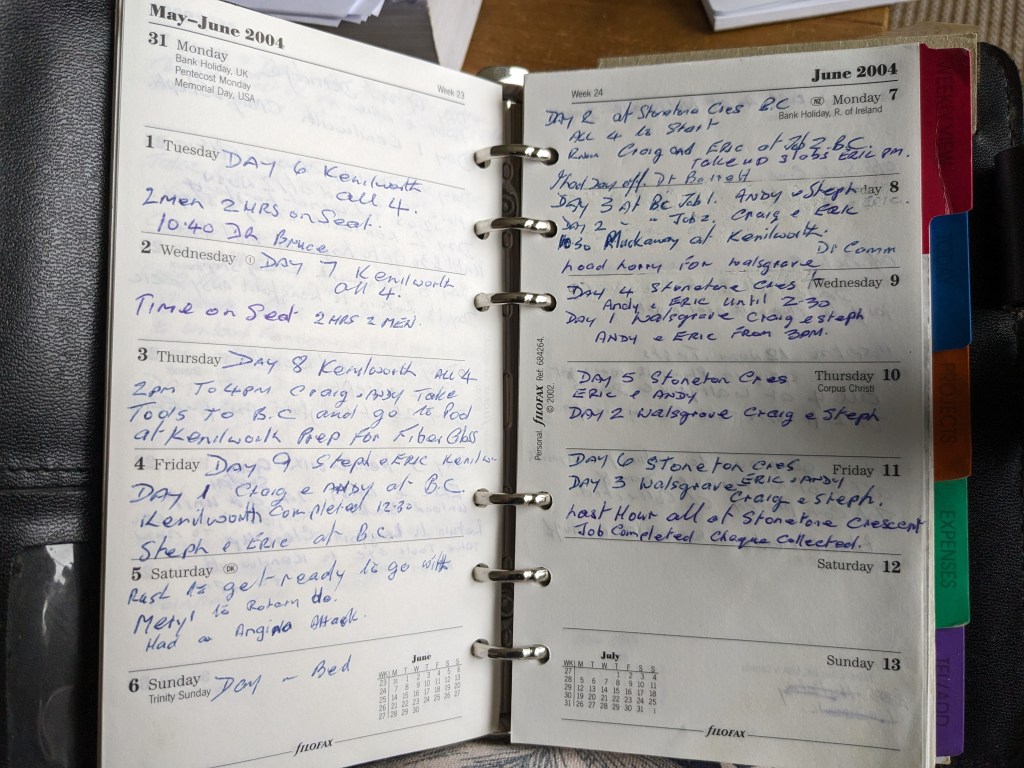 May–June 2004
31 Monday
Bank Holiday, UK
Pentecost Monday
Memorial Day, USA
Week 23
1 Tuesday DAY 6 Kenilworth
all 4.
2 men 2 HRS on Seat.
10:40 DR Bruce
2 Wednesday DAY 7 Kenilworth
all 4.
Time on Seat 2 HRS 2 MEN.
3 Thursday DAY 8 Kenilworth ALL 4
2pm To 4pm Craig & ANDY Take
Tools To B.C and go to Pod
at Kenilworth Prep For Fiber Glass
4 Friday DAY 9 Steph e ERIC Kenilw
DAY 1 Craig e ANDY at B.C.
Kenilworth Completed 12-30
Steph e ERIC at B.C.
5 Saturday DK
get ready to go with
Meryl to
Had a Angina Attack.
6 Sunday DAY – Bed
Trinity Sunday
June
WK M T W T F S S
23 31 1 2 3 4 5 6
24 7 8 9 10 11 12 13
25 14 15 16 17 18 19 20
26 21 22 23 24 25 26 27
27 28 29 30
FILOFAX
June 2004
Week 24
NZ Monday 7
Bank Holiday, R. of Ireland
DAY 2 at Stonetone Cres B.C
ALL 4 to Start
Craig and ERIC at Job 2 B.C.
Take up slabs ERIC pm.
Had Day off. Dr
DAY 3 At BC Job 1. ANDY e Steph
day 8
DAY 2 " Job 2. Craig e ERIC
10:30 at Kenilworth.
Dr Camm
Load Lorry for Walsgrave
DAY 4 Stonetone Cres
Wednesday 9
Andy e ERIC until 2-30
DAY 1 Walsgrave Craig e Steph
ANDY e ERIC FROM 3PM.
DAY 5 Stoneton Cres
Thursday 10
Corpus Christi
ERIC e ANDY
DAY 2 Walsgrave Craig e Steph
DAY 6 STONETON CRES
Friday 11
ERIC & ANDY
DAY 3 Walsgrave
Craig e Steph.
Last Hour all at Stonetone Crescent
Job Completed Cheque Collected.
Saturday 12
Sunday 13
July
WK M T W T F S S
27 1 2 3 4
28 5 6 7 8 9 10 11
29 12 13 14 15 16 17 18
30 19 20 21 22 23 24 25
31 26 27 28 29 30 31 1
FILOFAX
Personal. FILOFAX Ref: 684264.
© 2002.
PROJECTS
EXPENSES
TEL/ADD